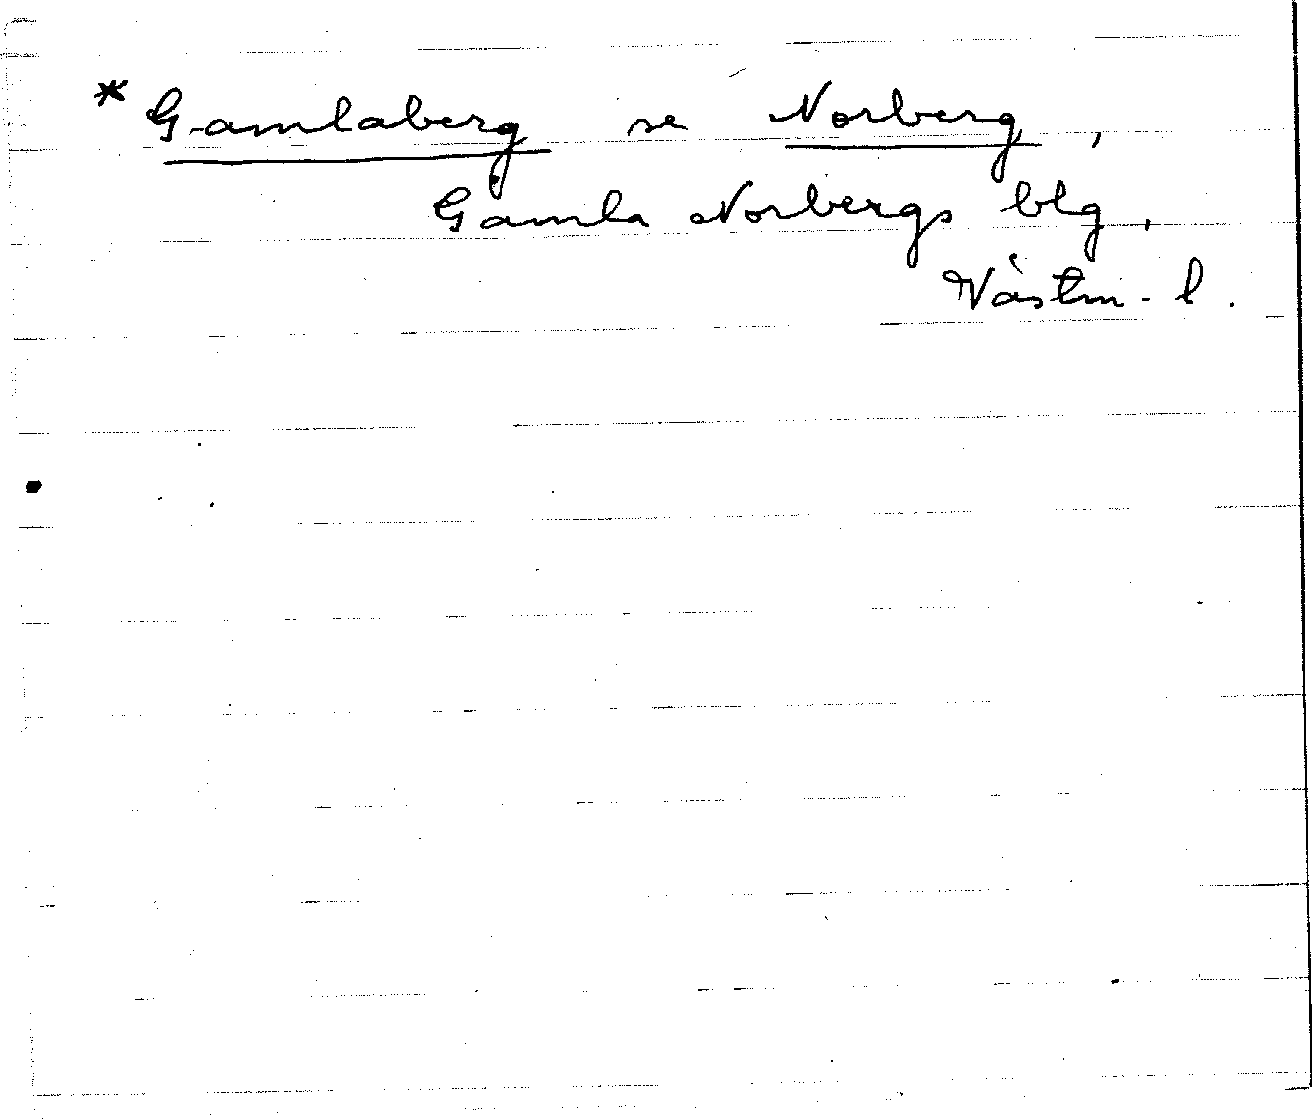 * Gamlaberg se Norberg,
Gamla Norbergs blg,
Västm. l.